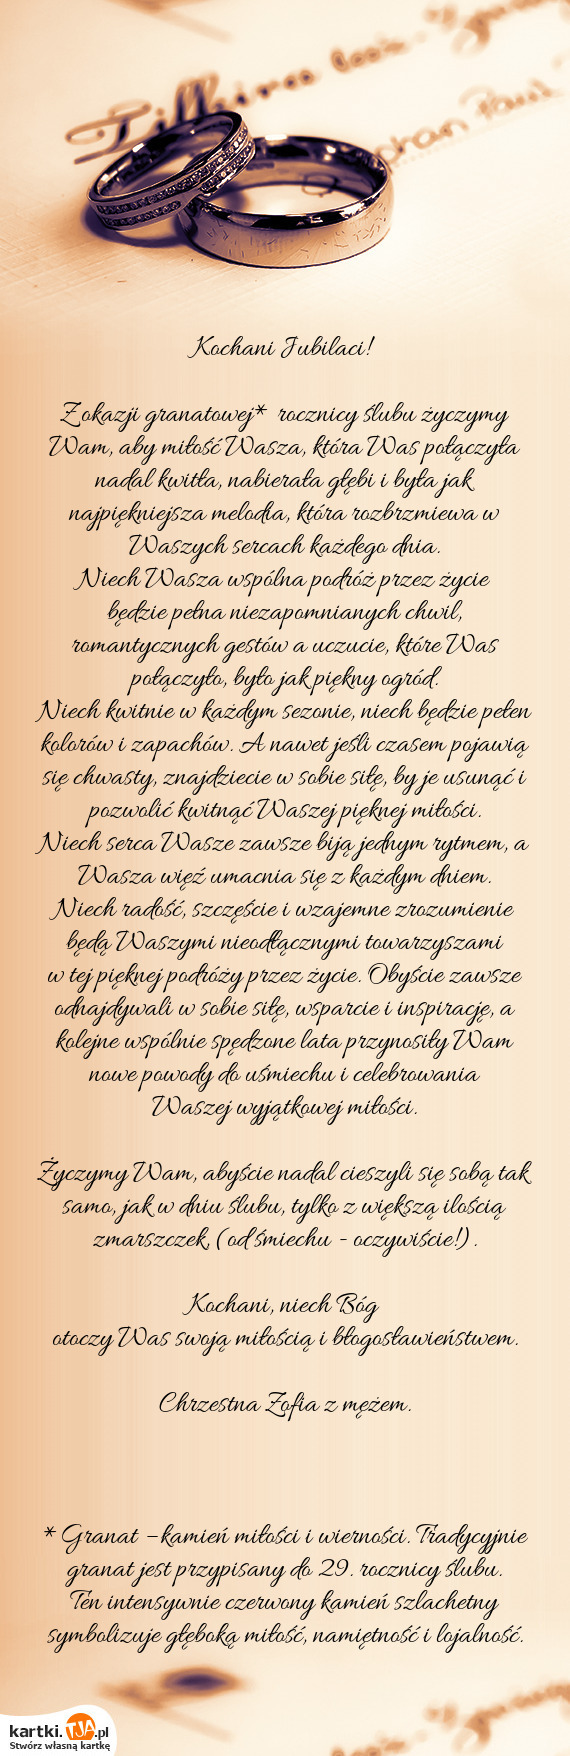 Kochani Jubilaci!
Z okazji granatowej* rocznicy ślubu życzymy
Wam, aby miłość Wasza, która Was połączyła
nadal kwitła, nabierała głębi i była jak
najpiękniejsza melodia, która rozbrzmiewa w
Waszych sercach każdego dnia.
Niech Wasza wspólna podróż przez życie
będzie pełna niezapomnianych chwil,
romantycznych gestów a uczucie, które Was
połączyło, było jak piękny ogród.
Niech kwitnie w każdym sezonie, niech będzie pełen
kolorów i zapachów. A nawet jeśli czasem pojawią
się chwasty, znajdziecie w sobie siłę, by je usunąć i
pozwolić kwitnąć Waszej pięknej miłości.
Niech serca Wasze zawsze biją jednym rytmem, a
Wasza więź umacnia się z każdym dniem.
Niech radość, szczęście i wzajemne zrozumienie
będą Waszymi nieodłącznymi towarzyszami
w tej pięknej podróży przez życie. Obyście zawsze
odnajdywali w sobie siłę, wsparcie i inspirację, a
kolejne wspólnie spędzone lata przynosiły Wam
nowe powody do uśmiechu i celebrowania
Waszej wyjątkowej miłości.
Życzymy Wam, abyście nadal cieszyli się sobą tak
samo, jak w dniu ślubu, tylko z większą ilością
zmarszczek, (od śmiechu - oczywiście!).
Kochani, niech Bóg
otoczy Was swoją miłością i błogosławieństwem.
Chrzestna Zofia z mężem.
* Granat – kamień miłości i wierności. Tradycyjnie
granat jest przypisany do 29. rocznicy ślubu.
Ten intensywnie czerwony kamień szlachetny
symbolizuje głęboką miłość, namiętność i lojalność.
kartki.TJA.pl
Stwórz własną kartkę